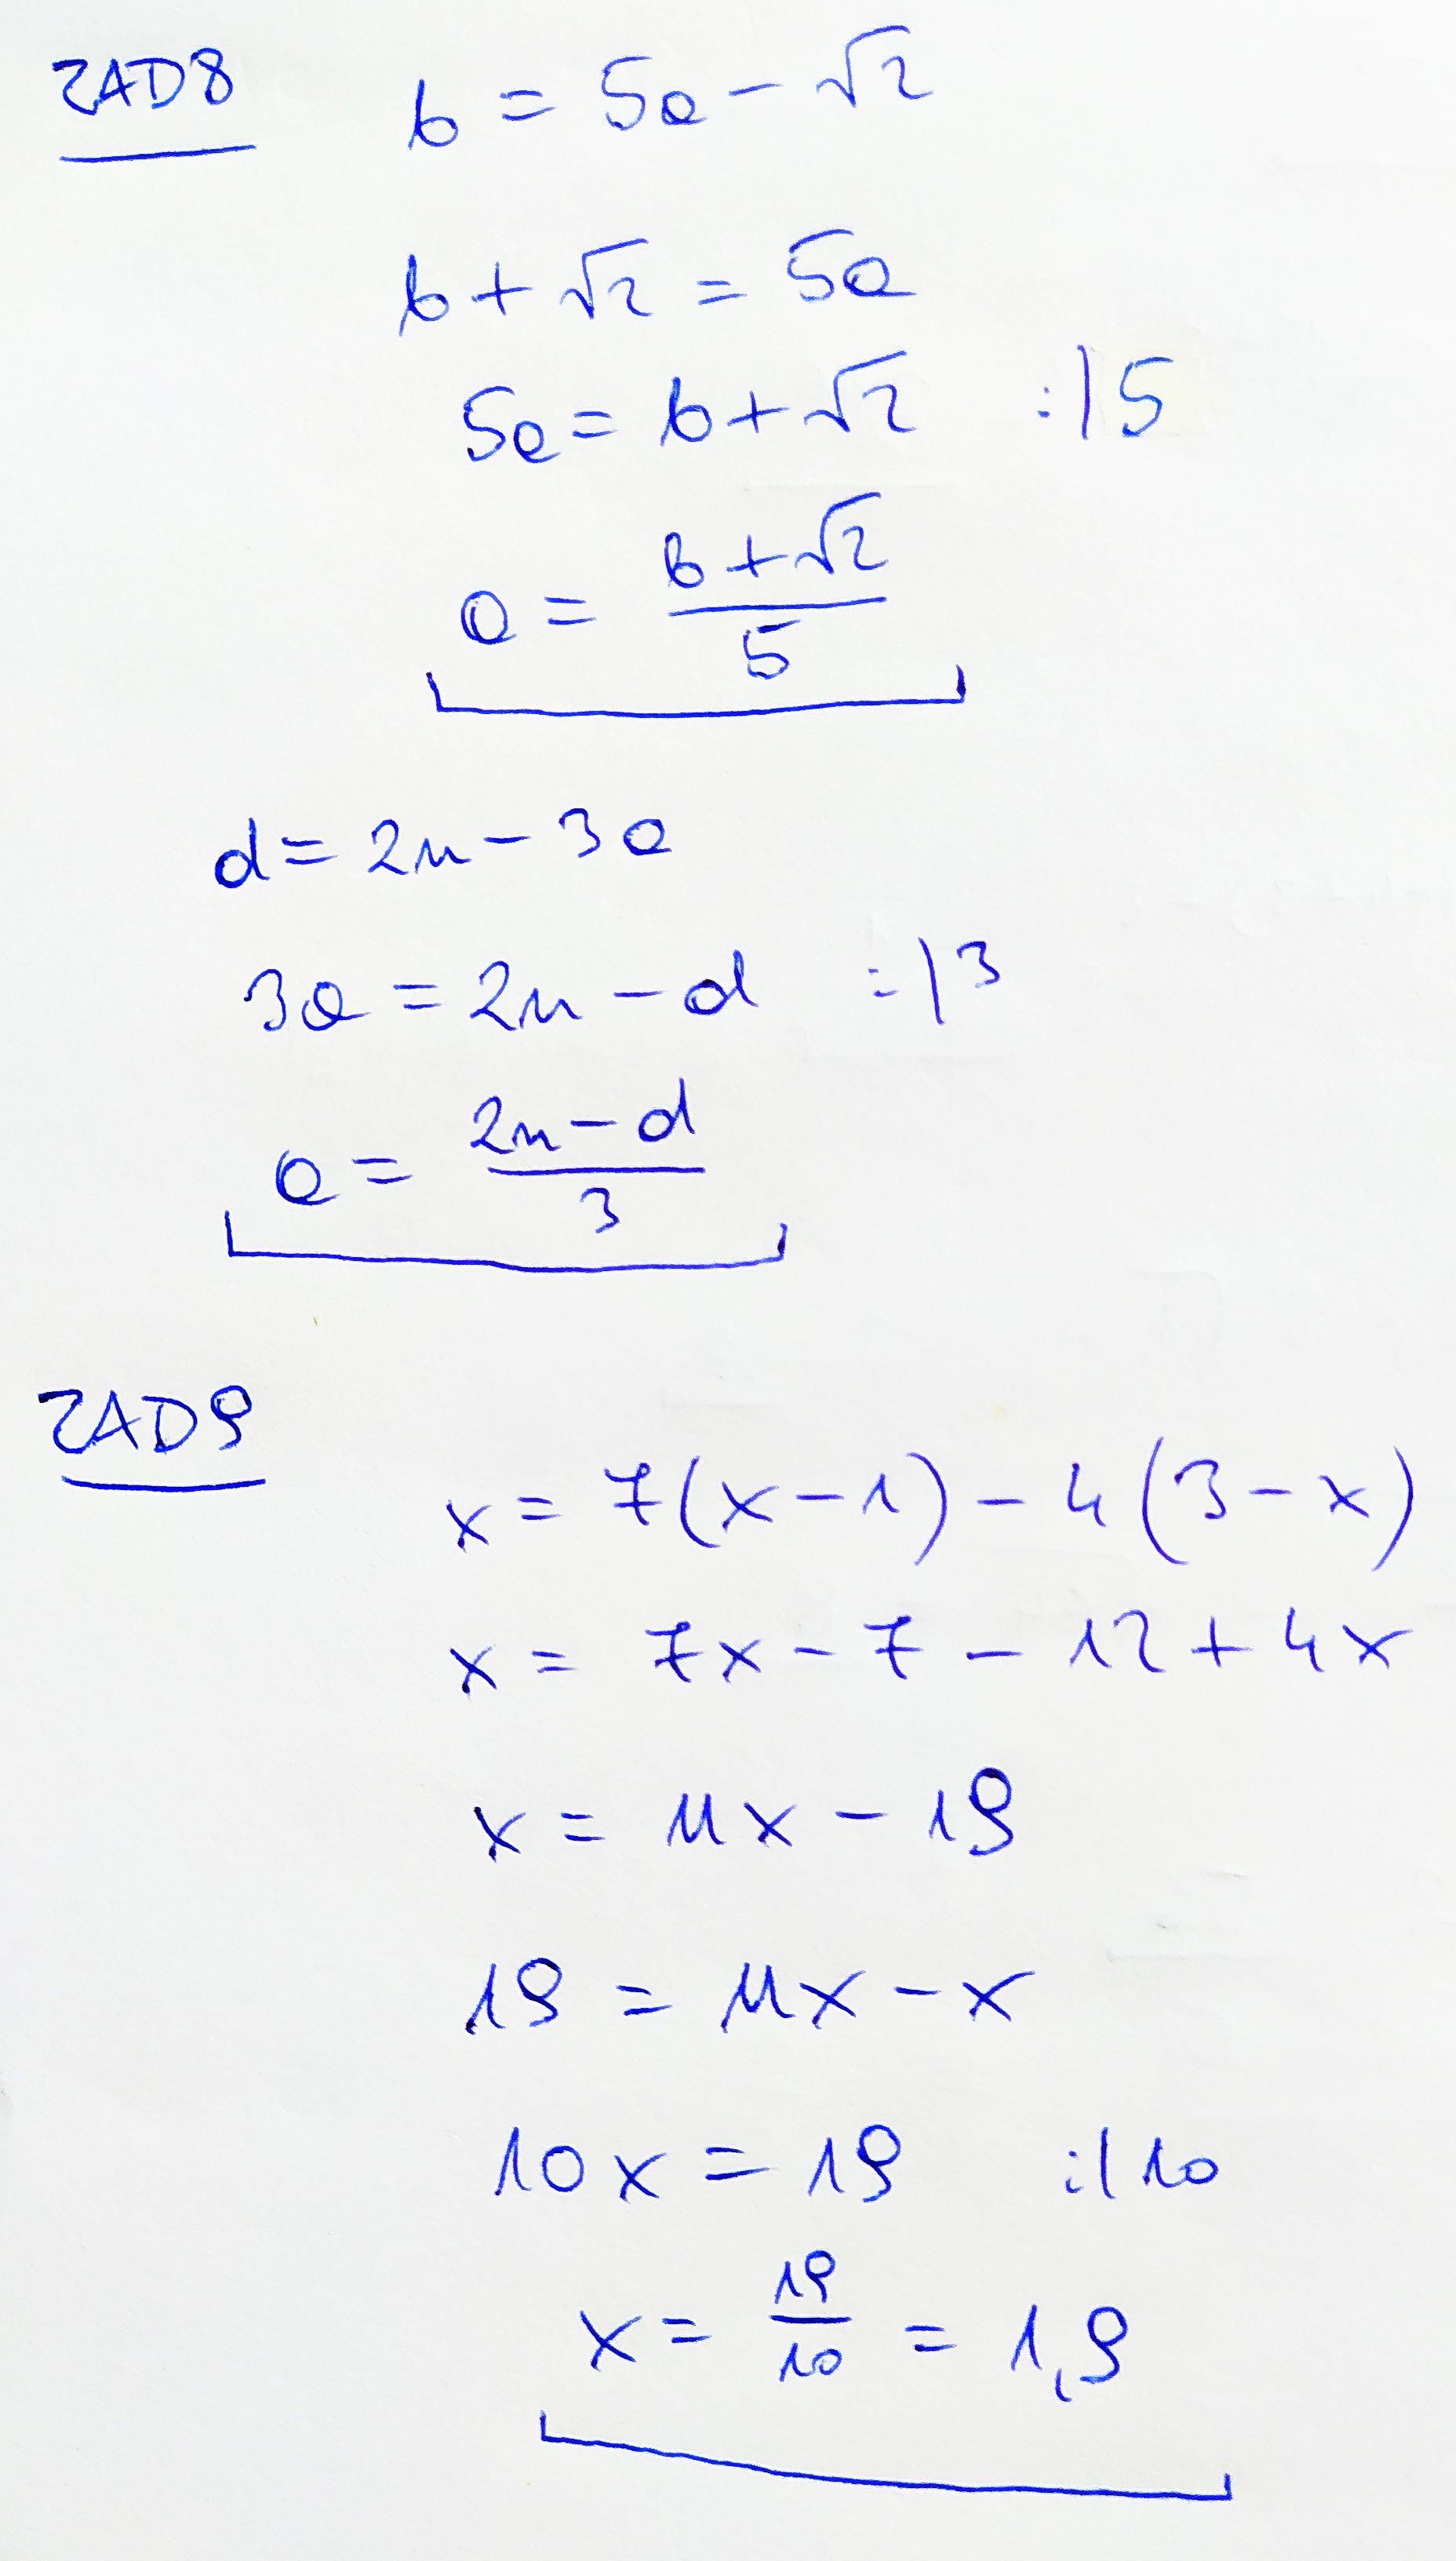 ZAD8 b = 5a - √2
b + √2 = 5a
5a = b + √2 :|5
a = (b + √2)/5
d = 2n - 3a
3a = 2n - d :|3
a = (2n - d)/3
ZAD9
x = 7(x - 1) - 4(3 - x)
x = 7x - 7 - 12 + 4x
x = 11x - 19
19 = 11x - x
10x = 19 :|10
x = 19/10 = 1,9